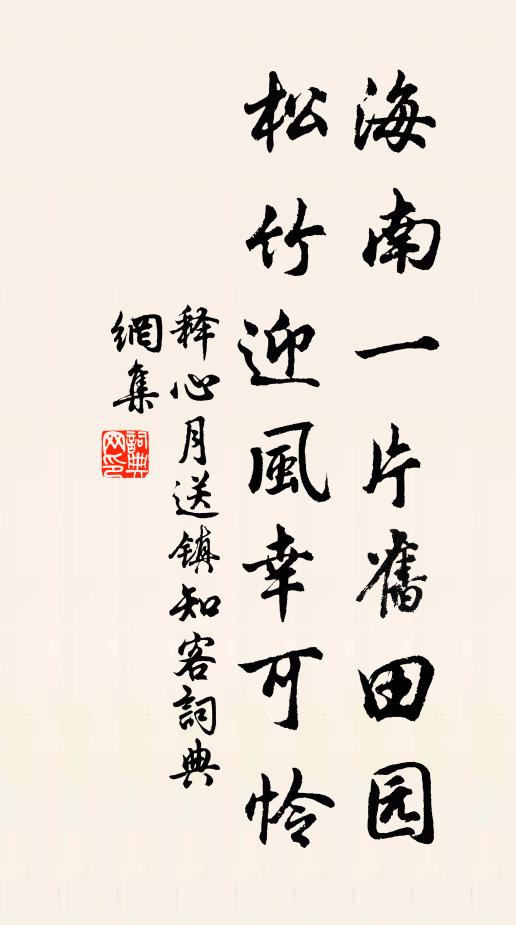 海南一片舊田园
松竹迎風幸可怜
释心月送镇知客詞典
網集
詞典网印